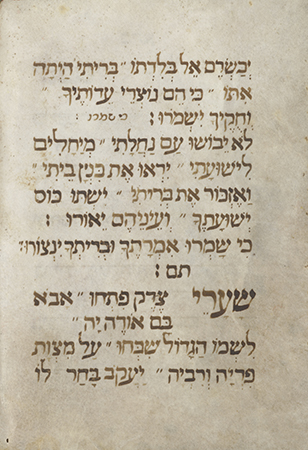 יכשרם אל בלדתו ״ בריתי היתה
אתו ״ כי הם נוצרי עדותיך ״
וחקיך ישמרו : כי שמרו
לא יבושו עם נחלתי ״ מיחלים
לישועתי ״ יראו את בנין ביתי ״
ואזכור את בריתי ״ ישתו כוס
ישועתך ״ ועיניהם יאורו :
כי שמרו אמרתך ובריתך ינצורו :
תם :
שערי צדק פתחו ״ אבא
בם אודה יה ״
לשמו הגדול שבחו ״ על מצות
פריה ורביה ״ יעקב בחר לו